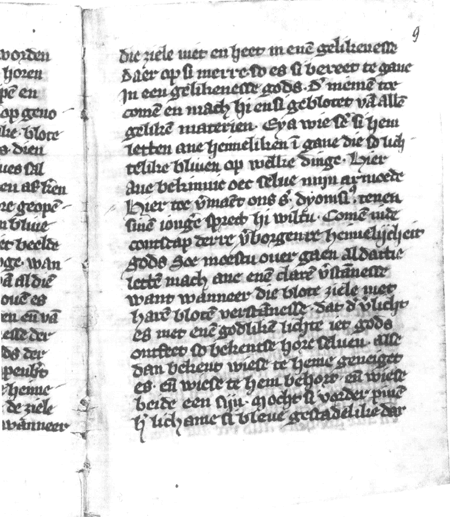 9
worden
horen
pē en
op geno
like. blote
s. dien
ues sal
re geopē
n bliue
et beelde
oge. wan
vā al diē
ouē es
en eñ vā
esse der
ds der
henne
de ziele
wanneer
die ziele niet en heet in enē gelikenesse
daer op si merre. so es si bereet te gane
in een gelikenesse gods. Dʼ niemē toe
comē en mach hi en si geblotet vā allē
gelikē materien. Eya wie sē si hem
letten ane hemeliken i gaue die so lich
telike bliuen op welke dinge. Hier
ane bekinnic oec selue mijn armoede
Hier toe vʼmaēt ons s. dyonisiꝰ. tenen
sinē iongʼe sprect hi wiltu. Comē inde
comscap derre vʼborgenre hemelijcheit
gods Soe moestu ouer gaen al dattie
lettē mach ane enē clarē vʼstānesse
want wanneer die blote ziele met
harē blotē verstānesse. dat dʼ vʼlicht
es met enē godlikē lichte iet gods
ontfeet so bekentse hore seluen. alse
dan bekent wiese te heme geneiget
es. eñ wiese te hem behort. eñ wiese
beide een sijn. Mocht si vorder pinē
hʼ lichame si bleue gestadelike dar